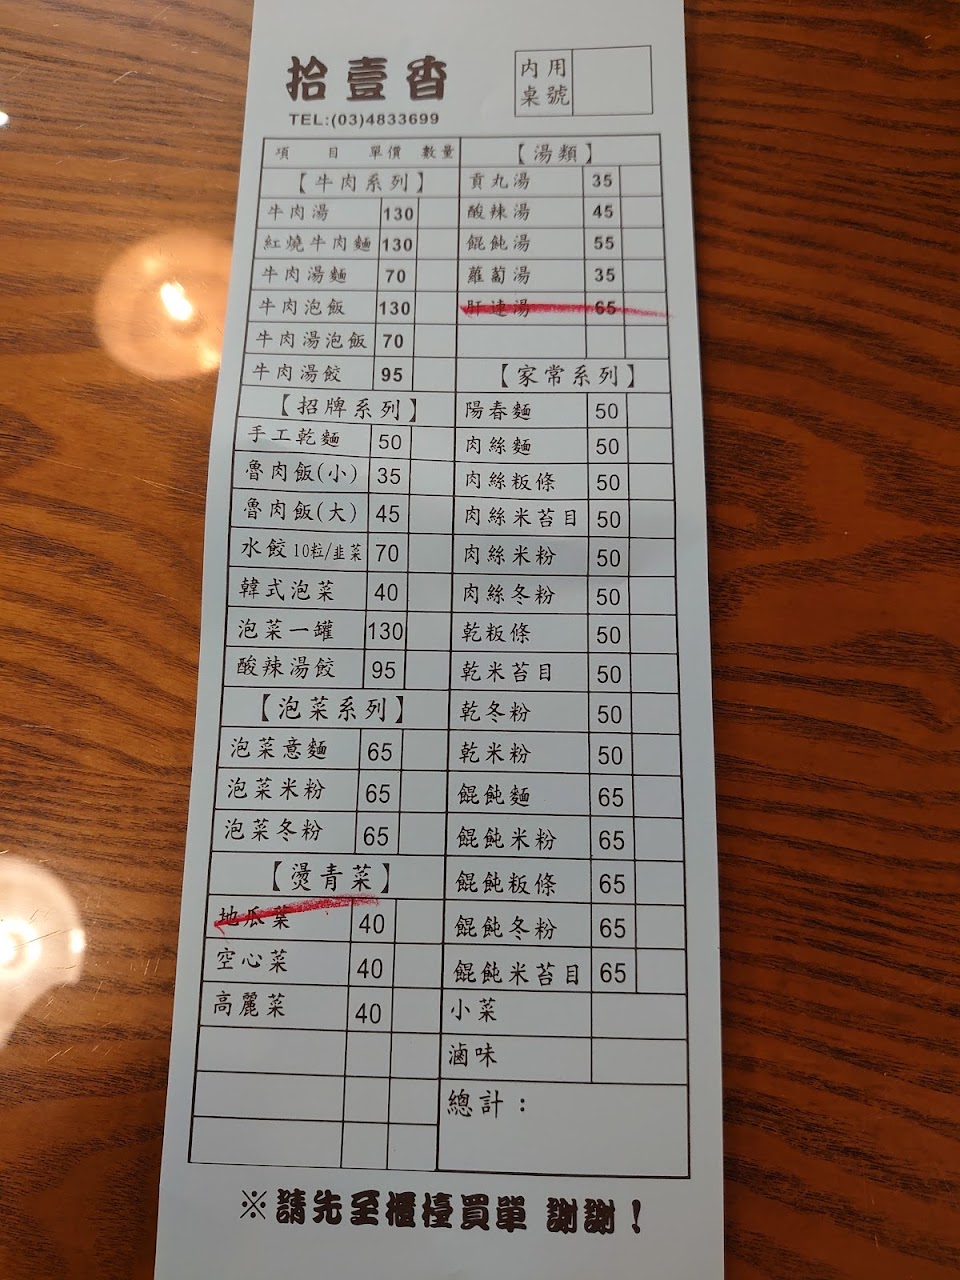 拾壹香
TEL:(03)4833699
內用
桌號
項 目 單價 數量
【牛肉系列】
牛肉湯 130
紅燒牛肉麵 130
牛肉湯麵 70
牛肉泡飯 130
牛肉湯泡飯 70
牛肉湯餃 95
【招牌系列】
手工乾麵 50
魯肉飯(小) 35
魯肉飯(大) 45
水餃10粒/韭菜 70
韓式泡菜 40
泡菜一罐 130
酸辣湯餃 95
【泡菜系列】
泡菜意麵 65
泡菜米粉 65
泡菜冬粉 65
【燙青菜】
地瓜葉 40
空心菜 40
高麗菜 40
【湯類】
貢丸湯 35
酸辣湯 45
餛飩湯 55
蘿蔔湯 35
肝連湯 65
【家常系列】
陽春麵 50
肉絲麵 50
肉絲粄條 50
肉絲米苔目 50
肉絲米粉 50
肉絲冬粉 50
乾粄條 50
乾米苔目 50
乾冬粉 50
乾米粉 50
餛飩麵 65
餛飩米粉 65
餛飩粄條 65
餛飩冬粉 65
餛飩米苔目 65
小菜
滷味
總計：
※請先至櫃檯買單 謝謝！